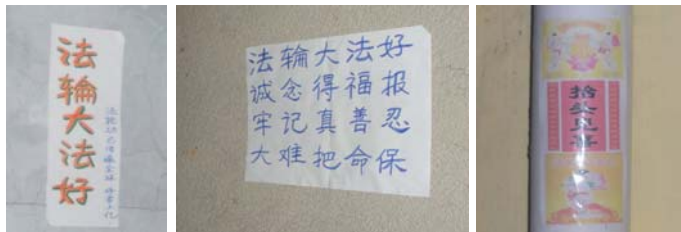 法轮大法好
法輪大法好
诚念得福报
牢记真善忍
大难把命保
拾金见喜